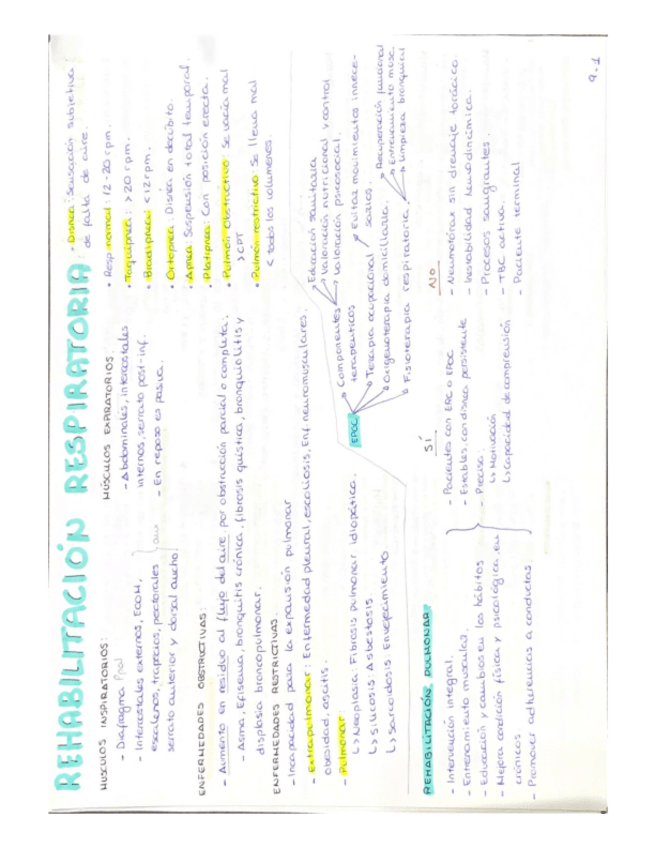 REHABILITACIÓN RESPIRATORIA:
MÚSCULOS INSPIRATORIOS:
- Diafragma Ppal
- Intercostales externos, ECOM,
escalenos, trapecios, pectorales
serrato anterior y dorsal ancho
MÚSCULOS EXPIRATORIOS.
- Abdominales, intercostales
internos, serrato post-inf.
- En reposo es pasiva.
• Disnea: Sensación subjetiva
de falta de aire.
• Resp normal: 12-20 rpm.
• Taquipnea: > 20 rpm.
• Bradipnea: < 12 rpm.
• Ortopnea: Disnea en decúbito.
• Apnea: Suspensión total temporal.
• Platipnea: Con posición erecta.
• Pulmón obstructivo: Se vacía mal
> CPT
• Pulmón restrictivo: Se llena mal
< todos los volúmenes.
ENFERMEDADES OBSTRUCTIVAS:
- Aumento en al flujo del aire, por obstrucción parcial o completa.
- Asma, Efisema, bronquitis crónica, fibrosis quística, bronquiolitis y
displasia broncopulmonar.
ENFERMEDADES RESTRICTIVAS.
- Incapacidad para la expansión pulmonar
- Extrapulmonar: Enfermedad pleural, escoliosis, Enf neuromusculares.
obesidad, ascitis.
- Pulmonar:
↳ Neoplasia: Fibrosis pulmonar Idiopática.
↳ silicosis: Asbestosis
↳ sarcoidosis: Envejecimiento
EPOC
Componentes
terapeuticos
Educación sanitaria
Valoración nutricional y control
Valoración psicosocial.
Terapia ocupacional
Evitar movimientos innece-
sarios.
Oxigenoterapia domiciliaria.
Fisioterapia respiratoria.
Recuperación funcional
Entrenamiento musc.
Limpieza bronquial
REHABILITACIÓN PULMONAR
- Intervención integral.
- Entrenamiento muscular.
- Educación y cambios en los hábitos
- Mejora condición física y psicológica en
crónicos
- Promover adherencia a conductas.
SÍ
- Pacientes con ERC o EPOC
- Estables, con disnea persistente
- Precisa:
↳ Motivación
↳ Capacidad de comprensión
NO
- Neumotórax sin drenaje torácico
- Inestabilidad hemodinámica.
- Procesos sangrantes.
- TBC activa.
- Paciente terminal
9-1